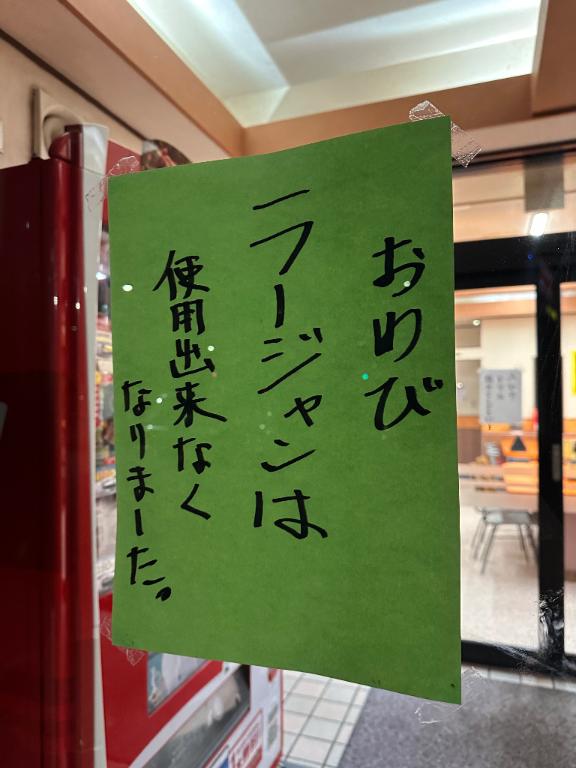 おわび
ラージャンは
使用出来なく
なりました。